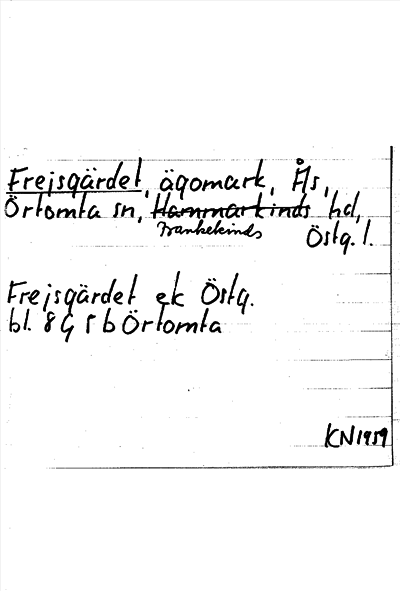 Frejsgärdet, ägomark, Ås,
Örtomta sn, Hammarkinds hd,
Bankekinds
Östg. l.
Frejsgärdet ek Östg.
bl. 8 G 5 b Örtomta
KN 1959